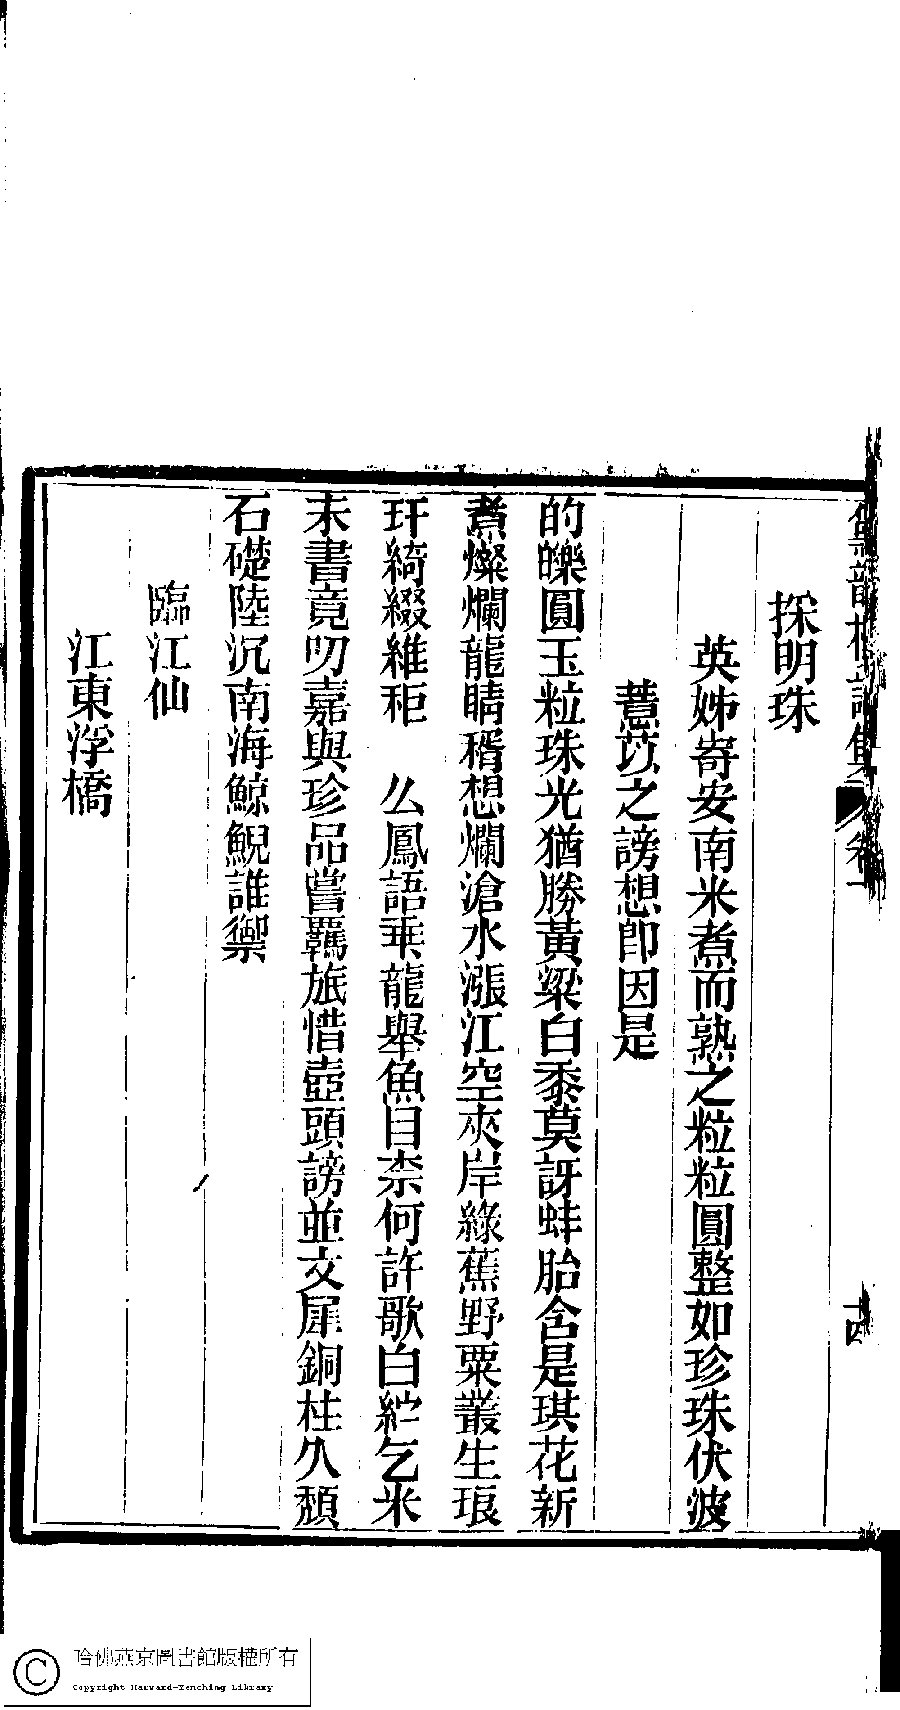 採明珠
英姊寄安南米煮而熟之粒粒圓整如珍珠伏波
薏苡之謗想卽因是
的皪圓玉粒珠光猶勝黃粱白黍莫訝蚌胎含是琪花新
煮燦爛龍睛稰想爛滄水漲江空夾岸綠蕉野粟叢生琅
玕綺綴維秬　么鳳語乘龍舉魚目柰何許歌白紵乞米
未書竟叨嘉與珍品嘗羈旅惜壺頭謗並文犀銅柱久頹
石礎陸沉南海鯨鯢誰禦
臨江仙
江東浮橋
卷一
十四
哈佛燕京圖書館版權所有
Copyright Harvard-Yenching Library